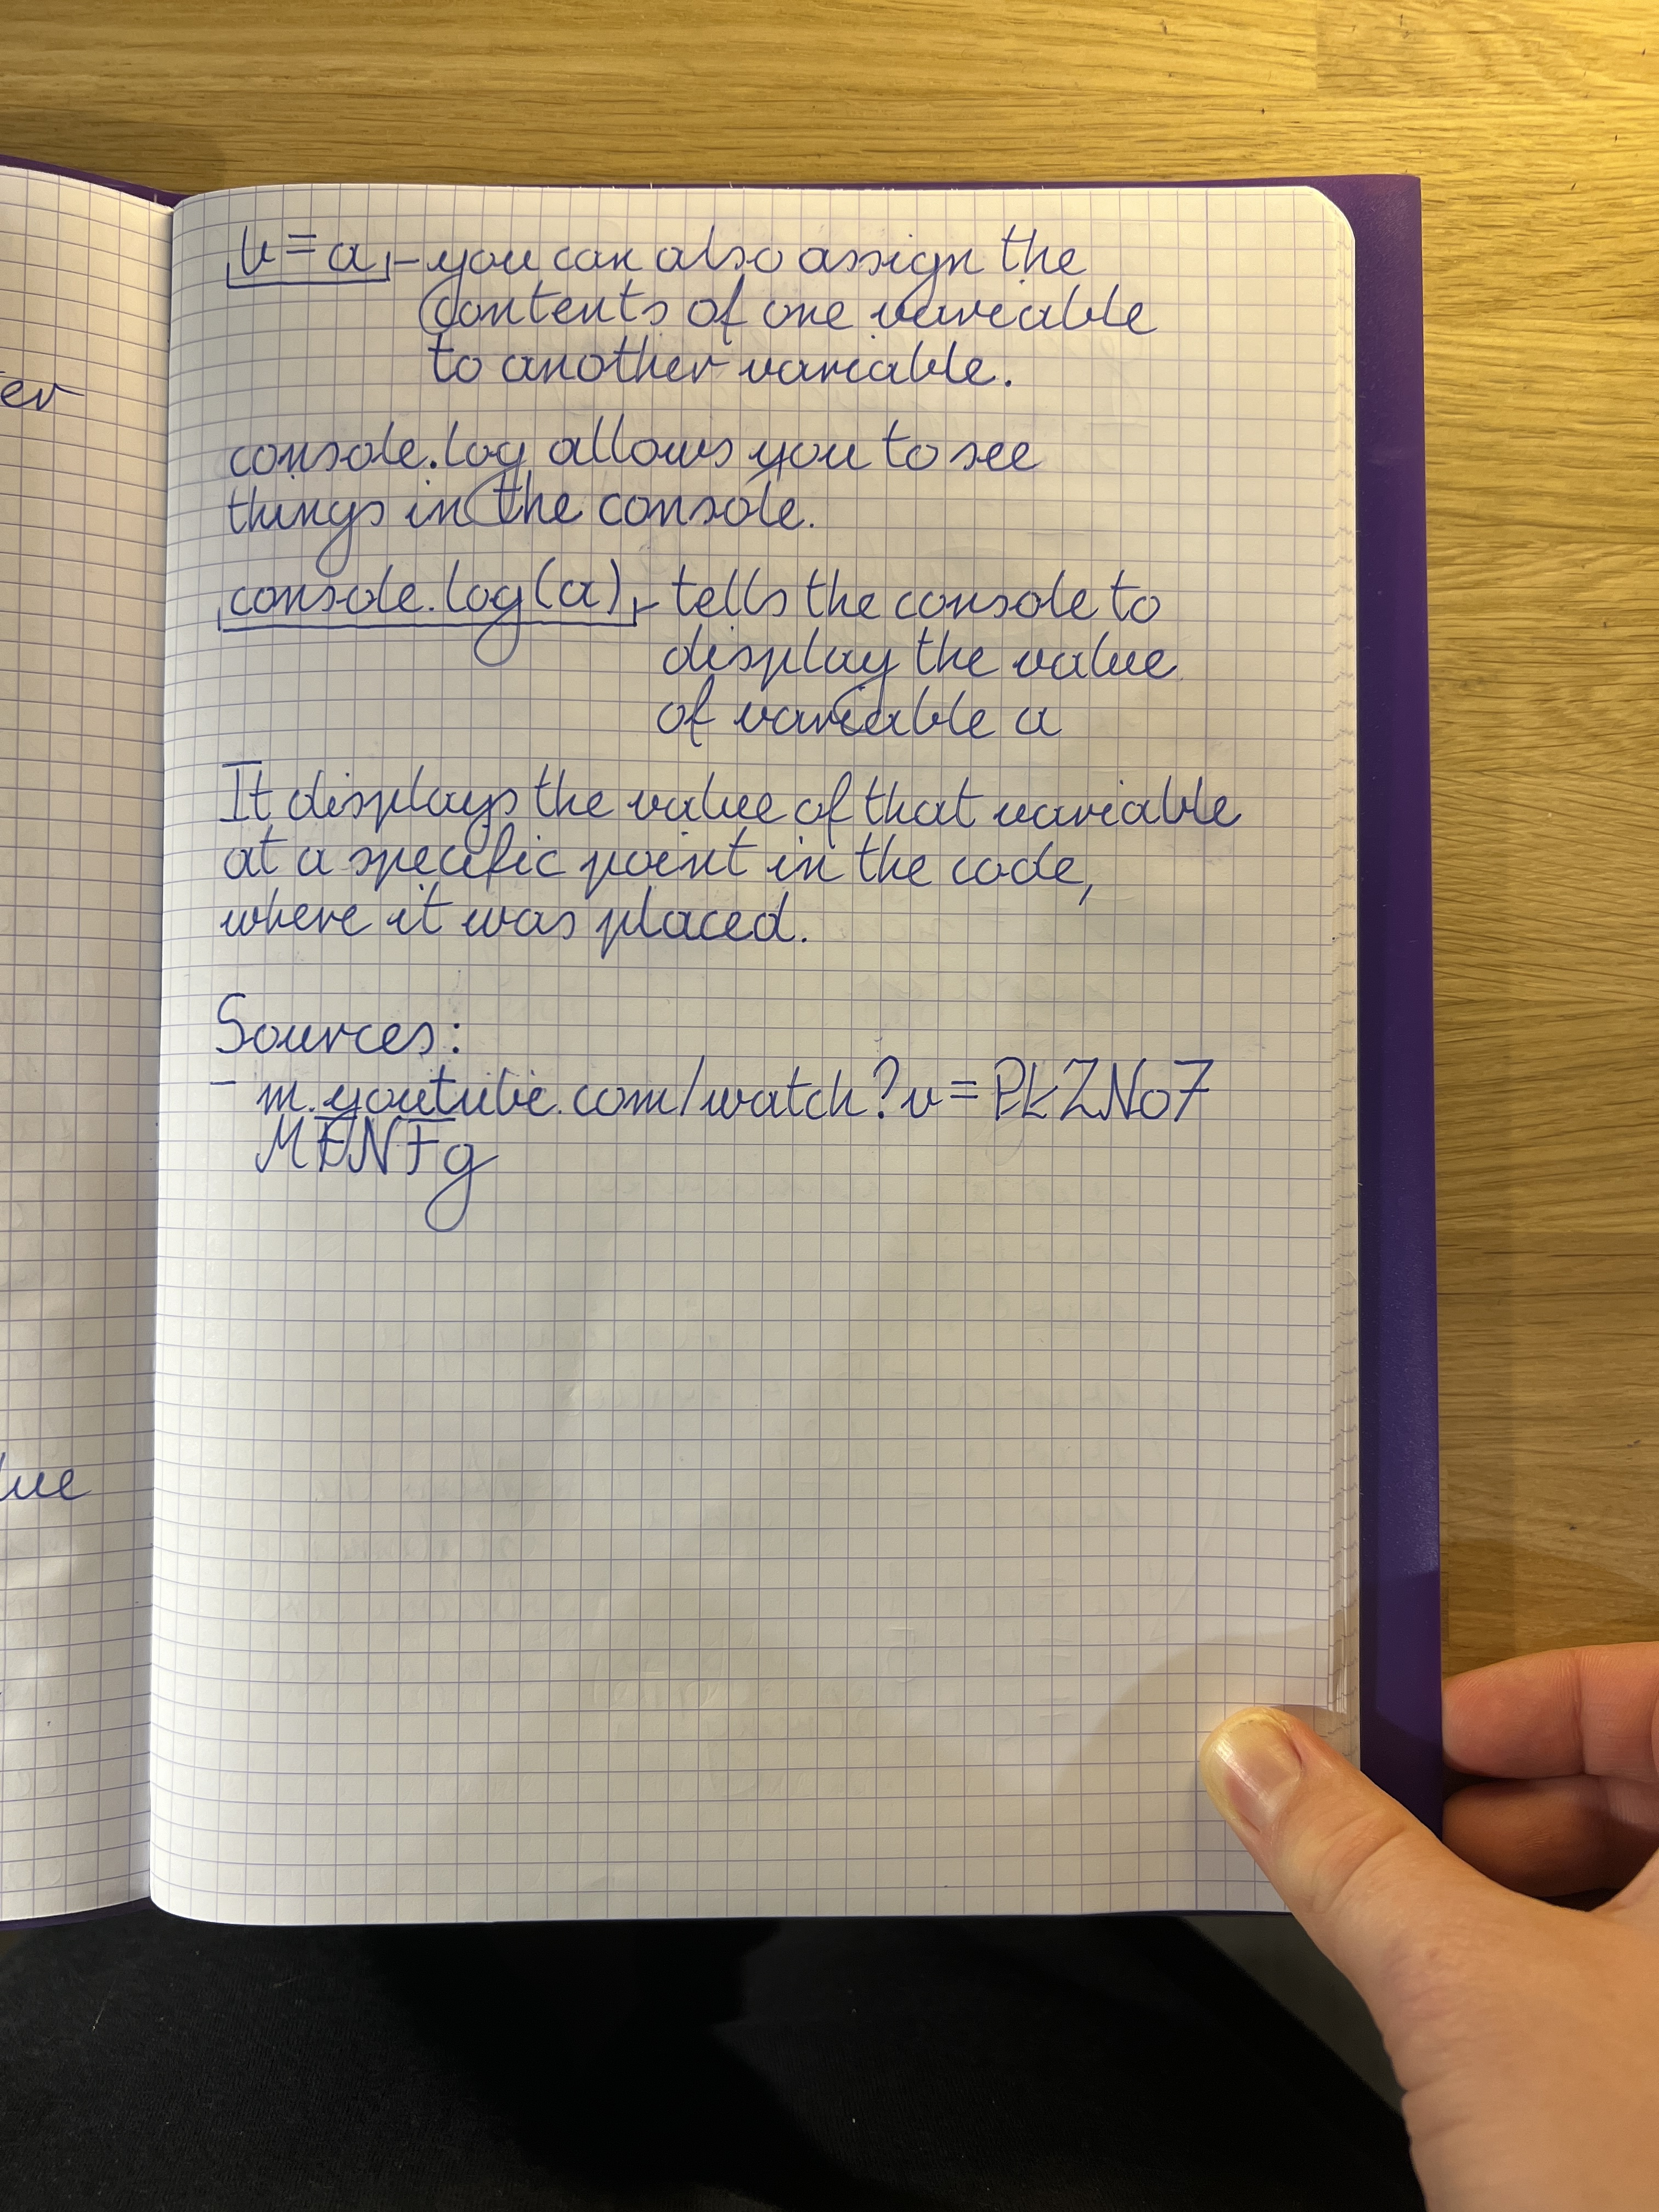 er
lue
b = a - you can also assign the
contents of one variable
to another variable.
console.log allows you to see
things in the console.
console.log(a) - tells the console to
display the value
of variable a
It displays the value of that variable
at a specific point in the code,
where it was placed.
Sources:
- m.youtube.com/watch?v=PkZNo7
MFNFg